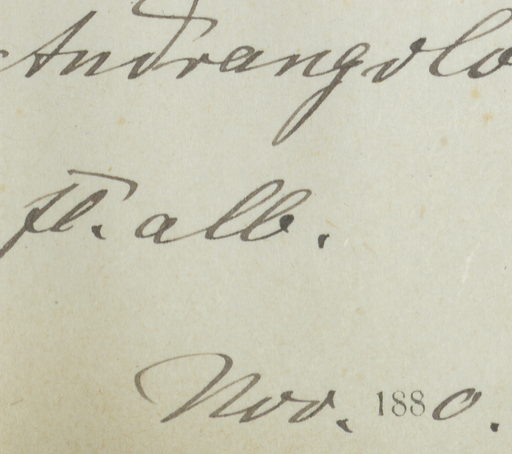 Andrangolo
fl. alb.
Nov. 1880.